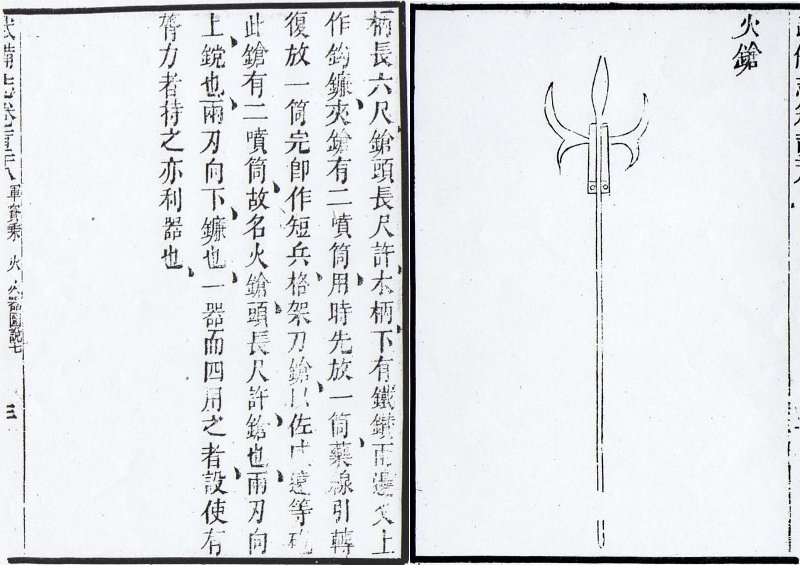 火鎗
柄長六尺鎗頭長尺許木柄下有鐵鐏兩邊叉上
作鈎鐮夾鎗有二噴筒用時先放一筒藥線引轉
復放一筒完卽作短兵格架刀鎗以佐遠等砲
此鎗有二噴筒故名火鎗頭長尺許鎗也兩刃向
上鎲也兩刃向下鐮也一器而四用之者設使有
膂力者持之亦利器也
武備志卷百八 軍資乘 火 火器圖說七 三